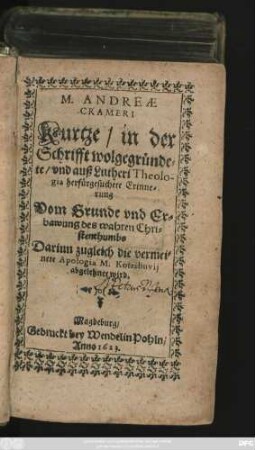 M. ANDREÆ
CRAMERI
Kurtze / in der
Schrifft wolgegründe-
te / vnd auß Lutheri Theolo-
gia herfürgesuchete Erinne-
rung
Vom Grunde vnd Er-
bawung des wahren Chri-
stenthumbs
Darinn zugleich die vermei-
nete Apologia M.
abgelehnet wird.
Magdeburg /
Gedruckt bey Wendelin Pohln /
Anno 1623.